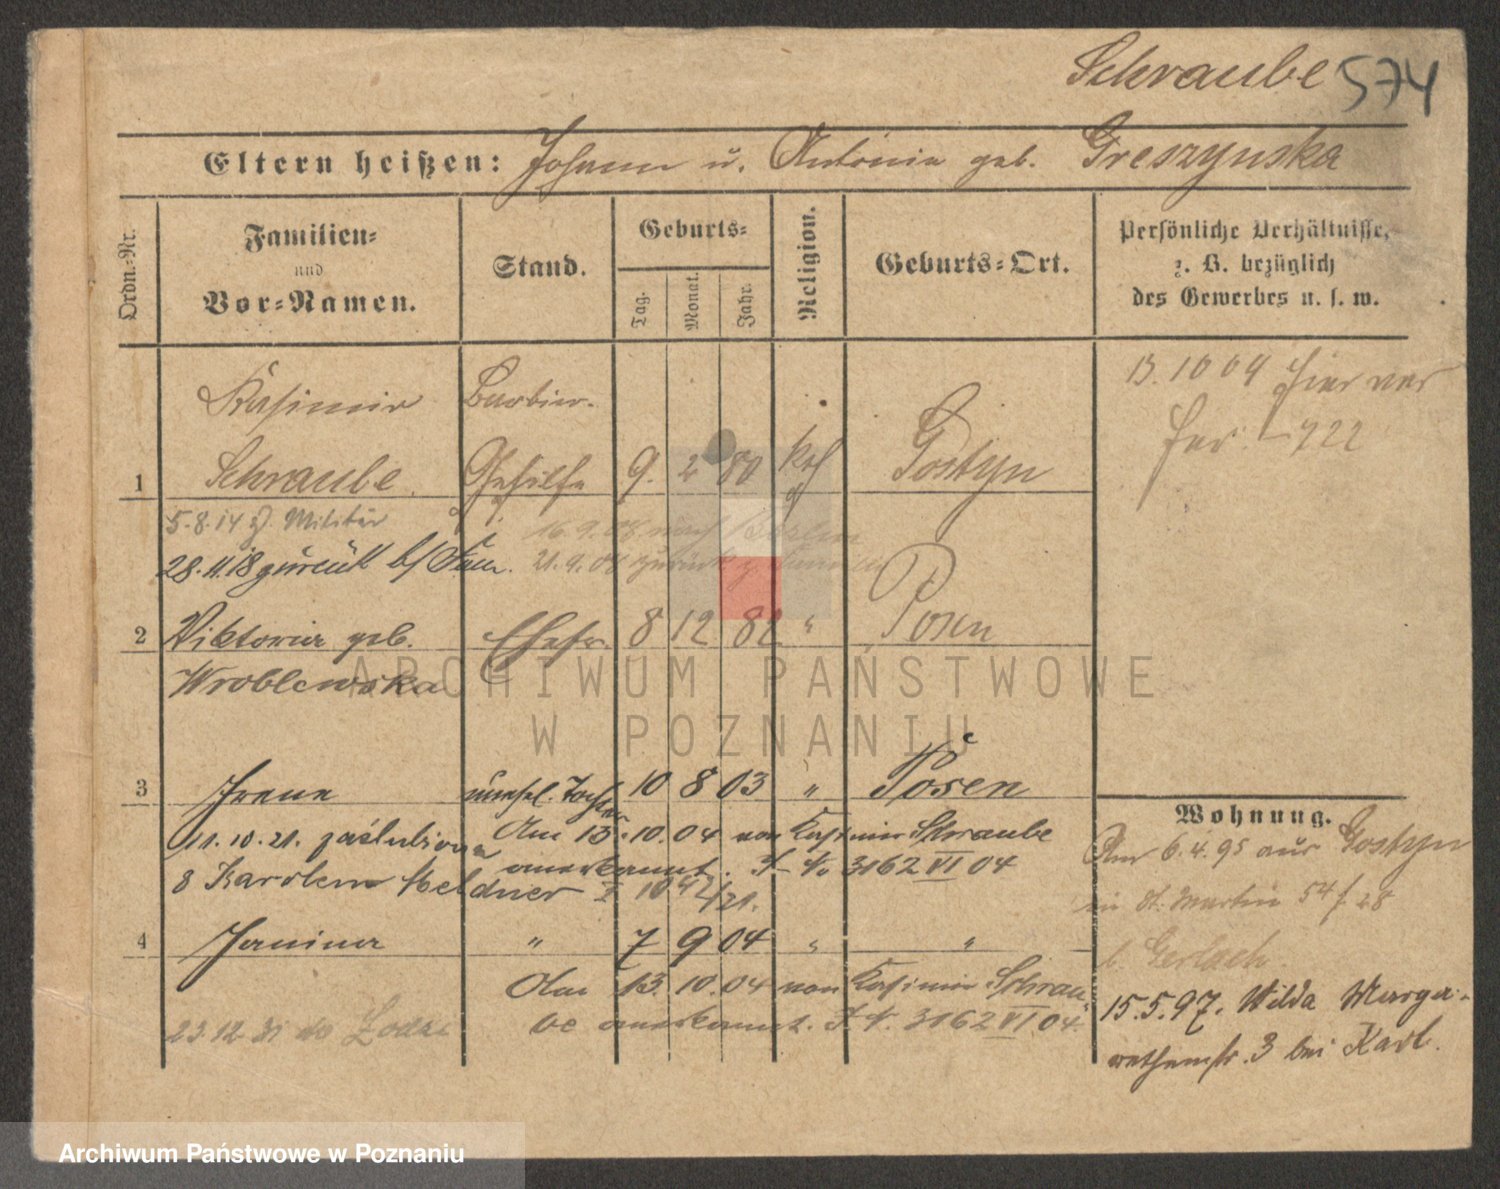 Schraube 574
Eltern heißen: Johann u. Antonie geb. Greszynska
Ordn.-Nr.
Familien-
und
Vor-Namen.
Stand.
Geburts-
Tag.
Monat.
Jahr.
Religion.
Geburts-Ort.
Persönliche Verhältnisse,
z. B. bezüglich
des Gewerbes u. s. w.
Kasimir Barbier-
1 Schraube. Gehilfe 9. 2 80 kath Gostyn
13. 10 04 hier ver
5.8.14 z. Militär
16.9.08 nach Berlin
28.11.18 zurück b/ Fam. 21.9.08 zurück
2 Viktoria geb. Ehefr. 8 12 82 " Posen
Wroblewska
ARCHIWUM PAŃSTWOWE
W POZNANIU
3 Irene unehel. Tochter 10 8 03 " Posen
Am 13.10.04 von Kasimir Schraube
11.10.21. zaślubiona
anerkannt. 3162 VI 04
8 Karolem Meldner
4 Janina " 7 9 04 " "
Am 13.10.04 von Kasimir Schrau-
be anerkannt. 3162 VI 04.
23.12.31 do
Wohnung.
Am 6.4.95 aus Gostyn
in St. Martin 54 f. 28
b. Gerlach.
15.5.97. Wilda Marga-
rethenstr. 3 bei Karl.
Archiwum Państwowe w Poznaniu